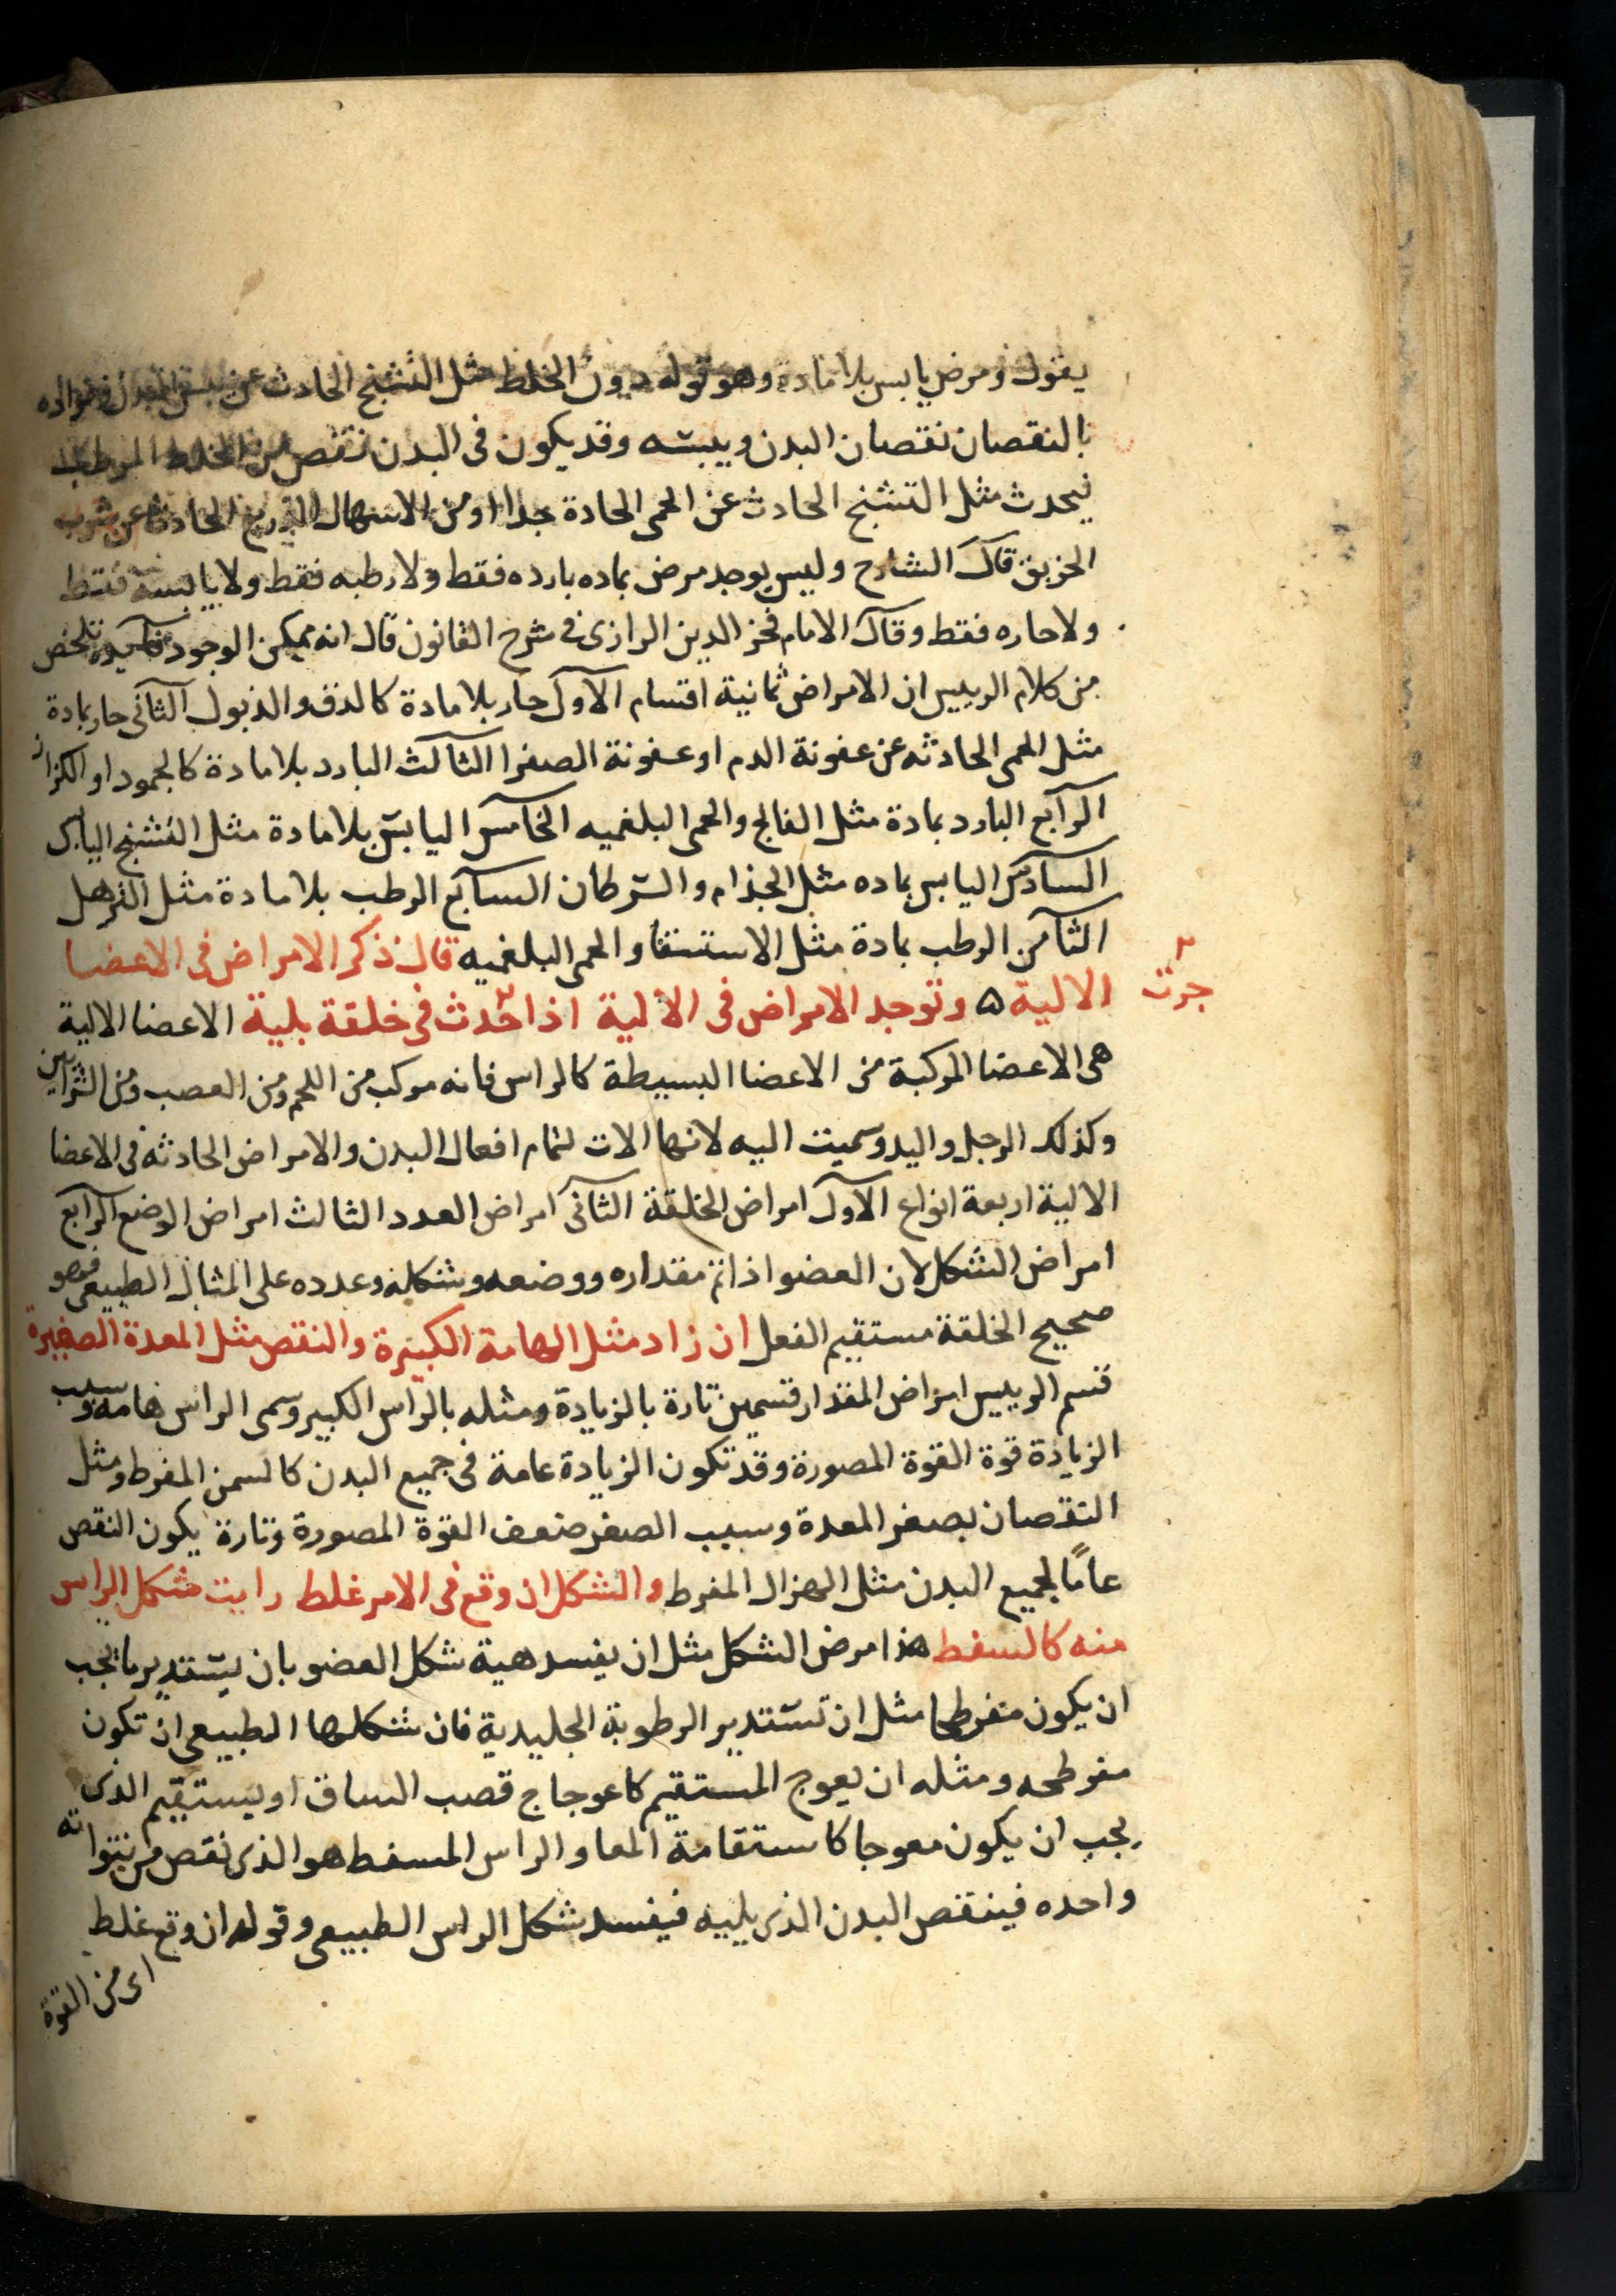 يقول ومرض يابس بلا مادة وهو قوله دون الخلط مثل التشنج الحادث عن
بالنقصان نقصان البدن ويبسه وقد يكون فى البدن نقص من الخلط المرطب
فيحدث مثل التشنج الحادث عن الحمى الحادة جدا او من الاسهال الذريع الحادث عن شرب
الخربق قال الشارح وليس يوجد مرض بماده بارده فقط ولا رطبه فقط ولا يابسة فقط
ولا حاره فقط وقال الامام فخر الدين الرازى فى شرح القانون قال انه يمكن الوجود تلخص
من كلام الرييس ان الامراض ثمانية اقسام الاول حار بلا مادة كالدق والذبول الثانى حار بمادة
مثل الحمى الحادثه عن عفونة الدم او عفونة الصفرا الثالث البارد بلا مادة كالجمود او الكزاز
الرابع البارد بمادة مثل الفالج والحمى البلغميه الخامس اليابس بلا مادة مثل التشنج اليابس
السادس اليابس بماده مثل الجذام والسرطان السابع الرطب بلا مادة مثل الترهل
الثامن الرطب بمادة مثل الاستسقا والحمى البلغميه قال ذكر الامراض فى الاعضا
الالية ۵ وتوجد الامراض فى الالية اذا حدث فى خلقة بلية الاعضا الالية
جرت
هى الاعضا المركبة من الاعضا البسيطة كالراس فانه مركب من اللحم ومن العصب ومن الشرايين
وكذلك الرجل واليد وسميت اليه لانها الات لتمام افعال البدن والامراض الحادثه فى الاعضا
الالية اربعة انواع الاول امراض الخلقة الثانى امراض العدد الثالث امراض الوضع الرابع
امراض الشكل لان العضو اذا تم مقداره ووضعه وشكله وعدده على المثال الطبيعى فهو
صحيح الخلقة مستقيم الفعل ان زاد مثل الهامة الكبيرة والنقص مثل المعدة الصغيرة
قسم الرييس امراض المقدار قسمين تارة بالزيادة ومثله بالراس الكبير وسمى الراس هامه وسبب
الزيادة قوة القوة المصورة وقد تكون الزيادة عامة فى جميع البدن كالسمن المفرط ومثل
النقصان بصغر المعدة وسبب الصغر ضعف القوة المصورة وتارة يكون النقص
عامًا لجميع البدن مثل الهزال المفرط والشكل ان وقع فى الامر غلط رايت شكل الراس
منه كالسفط هذا مرض الشكل مثل ان يفسد هية شكل العضو بان يستدير ما يجب
ان يكون مفرطحا مثل ان تستدير الرطوبة الجليدية فان شكلها الطبيعى ان تكون
مفرطحه ومثله ان يعوج المستقيم كاعوجاج قصب الساق او يستقيم الذى
يجب ان يكون معوجا كاستقامة المعا والراس المسفط هو الذى نقص من نتواته
واحده فينقص البدن الذى يليه فيفسد شكل الراس الطبيعى وقوله ان وقع غلط
اى من القوة